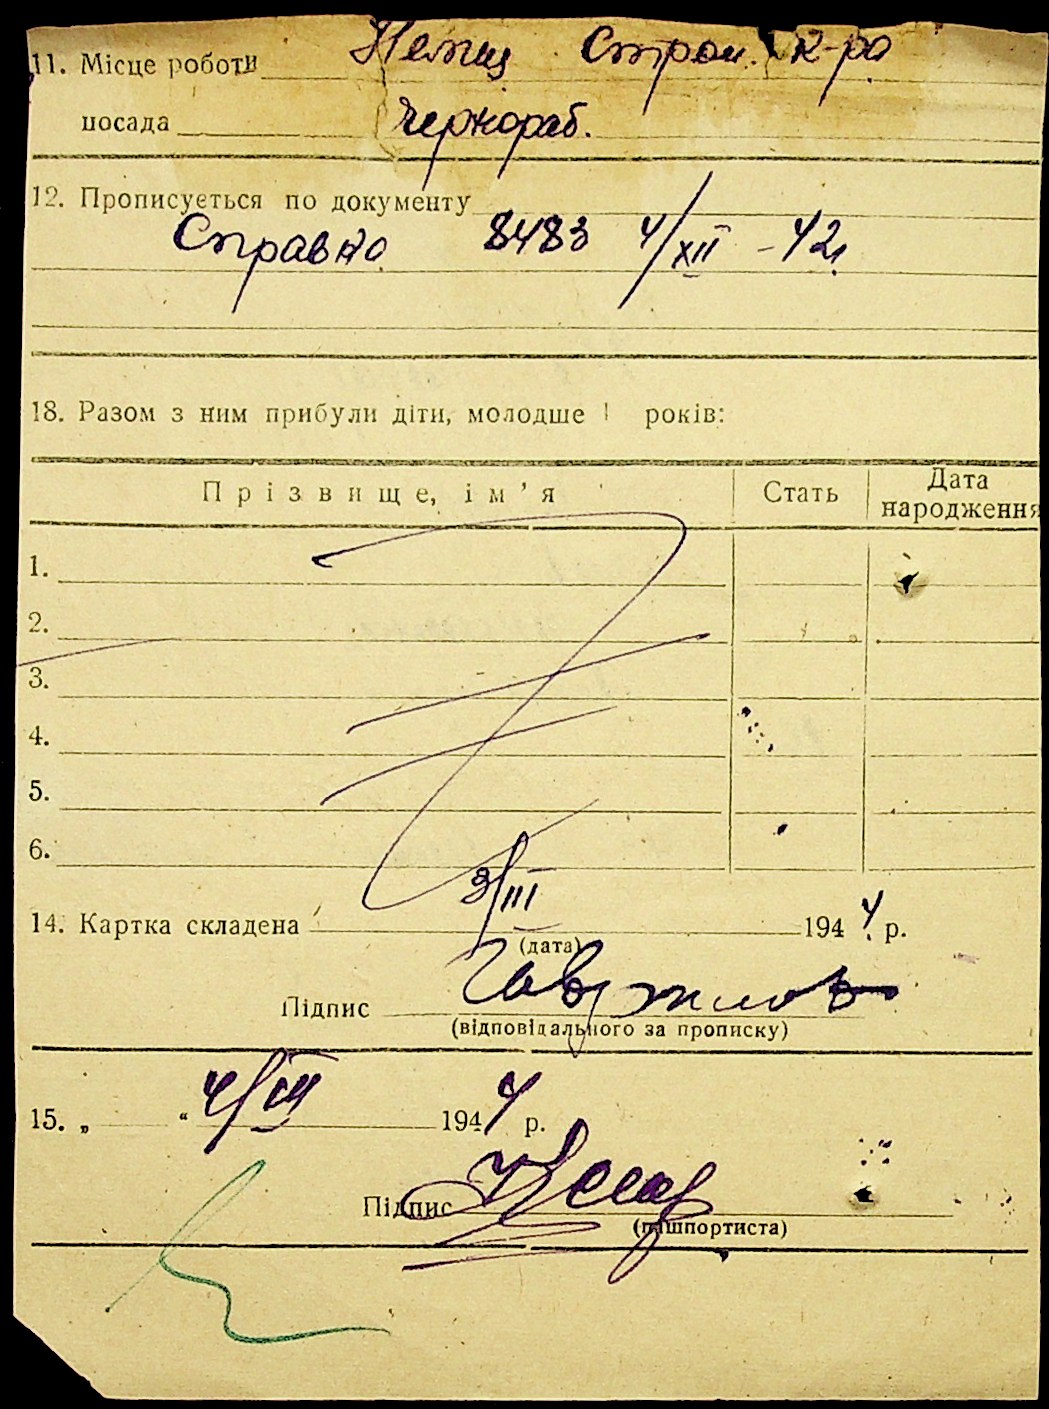 11. Місце роботи Немец Строи. к-ра
посада Чернораб.
12. Прописується по документу
Справка 8483 4/XII - 42
18. Разом з ним прибули діти, молодше 1 років:
Прізвище, ім'я Стать Дата народження
1.
2.
3.
4.
5.
6.
14. Картка складена 3/III 1944 р.
(дата)
Підпис
(відповідального за прописку)
15. „ “ 4/III 1944 р.
Підпис
(пашпортиста)